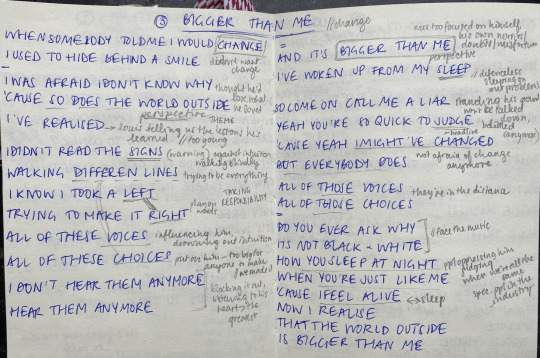 ③ BIGGER THAN ME //change
WHEN SOMEBODY TOLD ME I WOULD CHANGE/
I USED TO HIDE BEHIND A SMILE didn't want change
I WAS AFRAID I DON'T KNOW WHY thought he'd
'CAUSE SO DOES THE WORLD OUTSIDE
perspective THEME
I'VE REALISED → louis telling us the lessons he's learned // too young
I DIDN'T READ THE SIGNS (warning) against intuition
WALKING DIFFEREN LINES walking blindly
trying to be everything
I KNOW I TOOK A LEFT TAKING RESPONSIBILITY
TRYING TO MAKE IT RIGHT play on words
ALL OF THESE VOICES influencing him, drowning out intuition
ALL OF THESE CHOICES put on him - too big for anyone to make
I DON'T HEAR THEM ANYMORE blocking it out,
HEAR THEM ANYMORE listening to his heart → the greatest
was too focused on himself, his own worries/ doubts/misfortun
AND IT'S BIGGER THAN ME
perspective
I'VE WOKEN UP FROM MY SLEEP // defenceless sleeping on our problems
SO COME ON CALL ME A LIAR standing his ground
YEAH YOU'RE SO QUICK TO JUDGE won't be talked down,
'CAUSE YEAH I MIGHT'VE CHANGED belittled (anymore)
BUT EVERYBODY DOES not afraid of change anymore
ALL OF THOSE VOICES they're in the distance
ALL OF THOSE CHOICES
DO YOU EVER ASK WHY
ITS NOT BLACK + WHITE // face the music
HOW YOU SLEEP AT NIGHT ppl oppressing him judging
WHEN YOU'RE JUST LIKE ME when we're all the same
'CAUSE I FEEL ALIVE ↔ sleep spec. ppl in the industry
NOW I REALISE
THAT THE WORLD OUTSIDE
IS BIGGER THAN ME